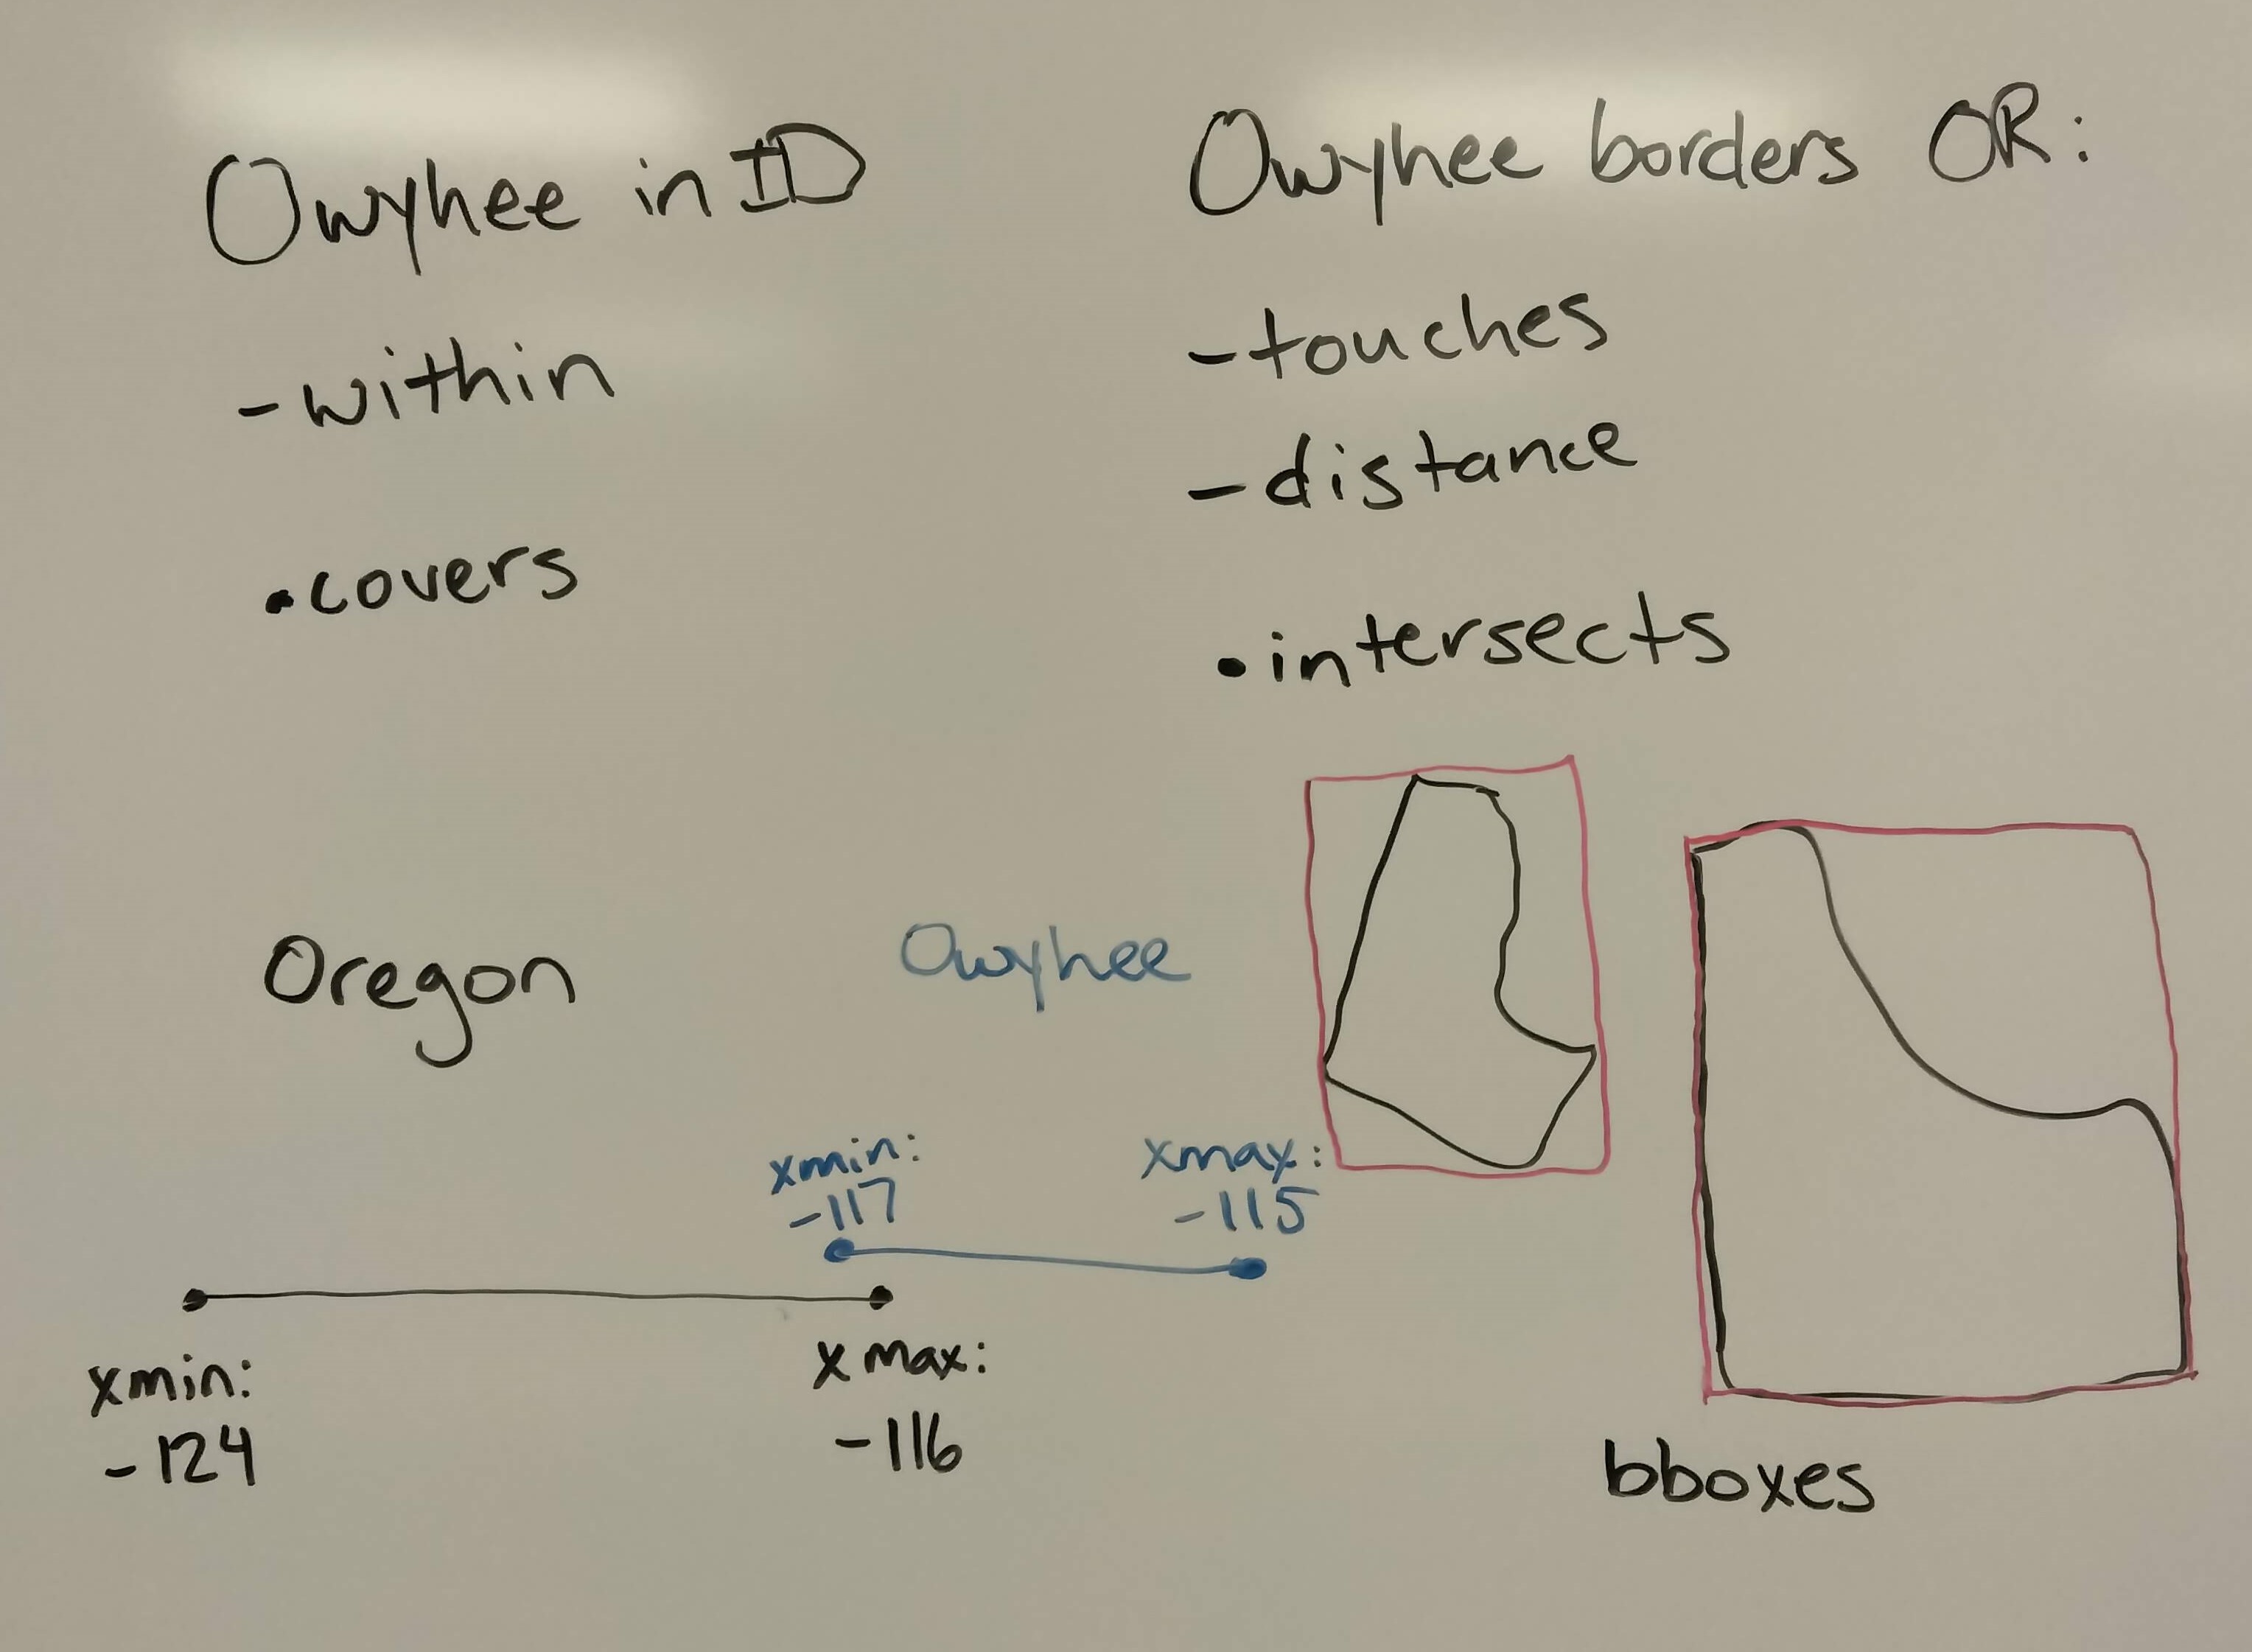 Owyhee in ID
-within
•covers
Owyhee borders OR:
-touches
-distance
•intersects
Oregon
Owyhee
xmin:
-117
xmax:
-115
xmin:
-124
xmax:
-116
bboxes